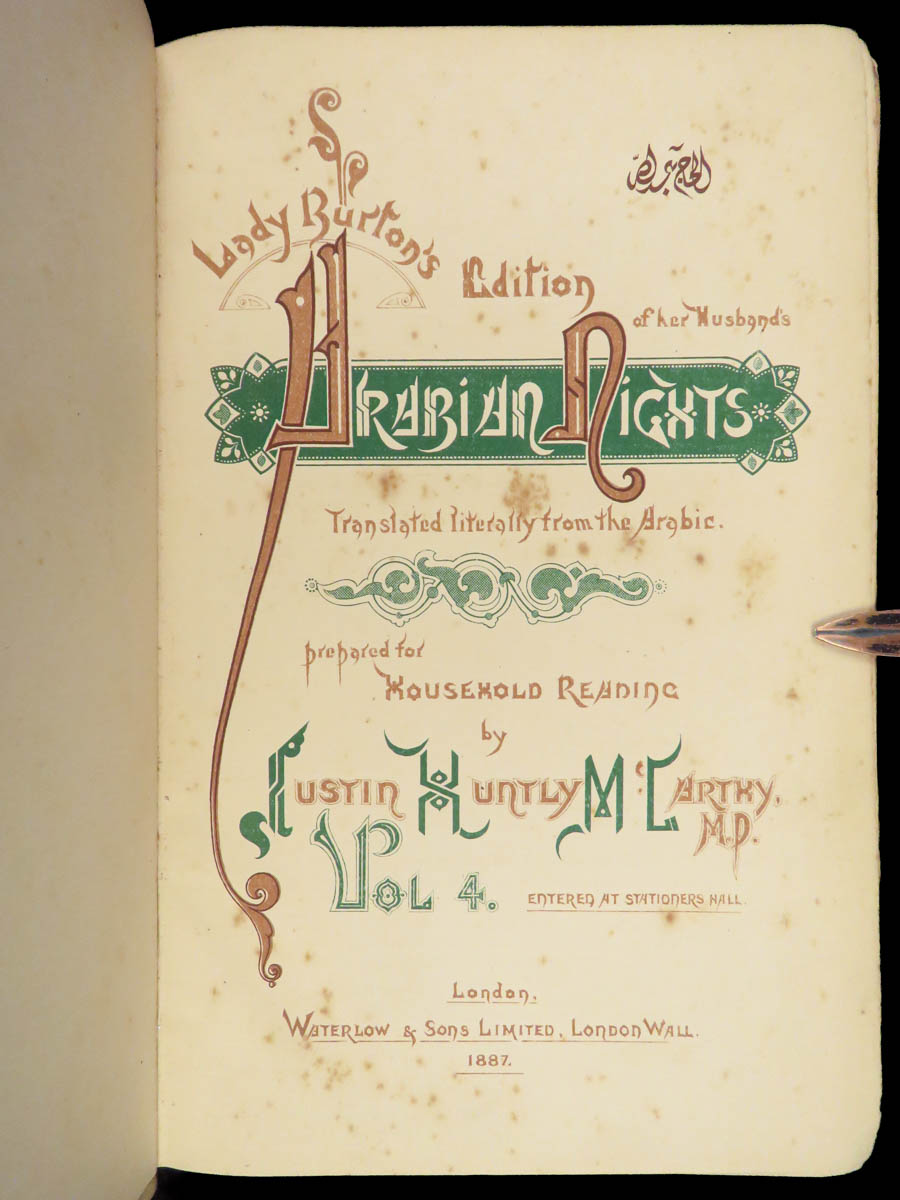 الحاج عبدالله
Lady Burton's
Edition
of her Husband's
Arabian Nights
Translated literally from the Arabic.
prepared for
Household Reading
by
Justin Huntly McCarthy,
M.P.
Vol 4.
Entered at Stationers Hall.
London.
Waterlow & Sons Limited, London Wall.
1887.